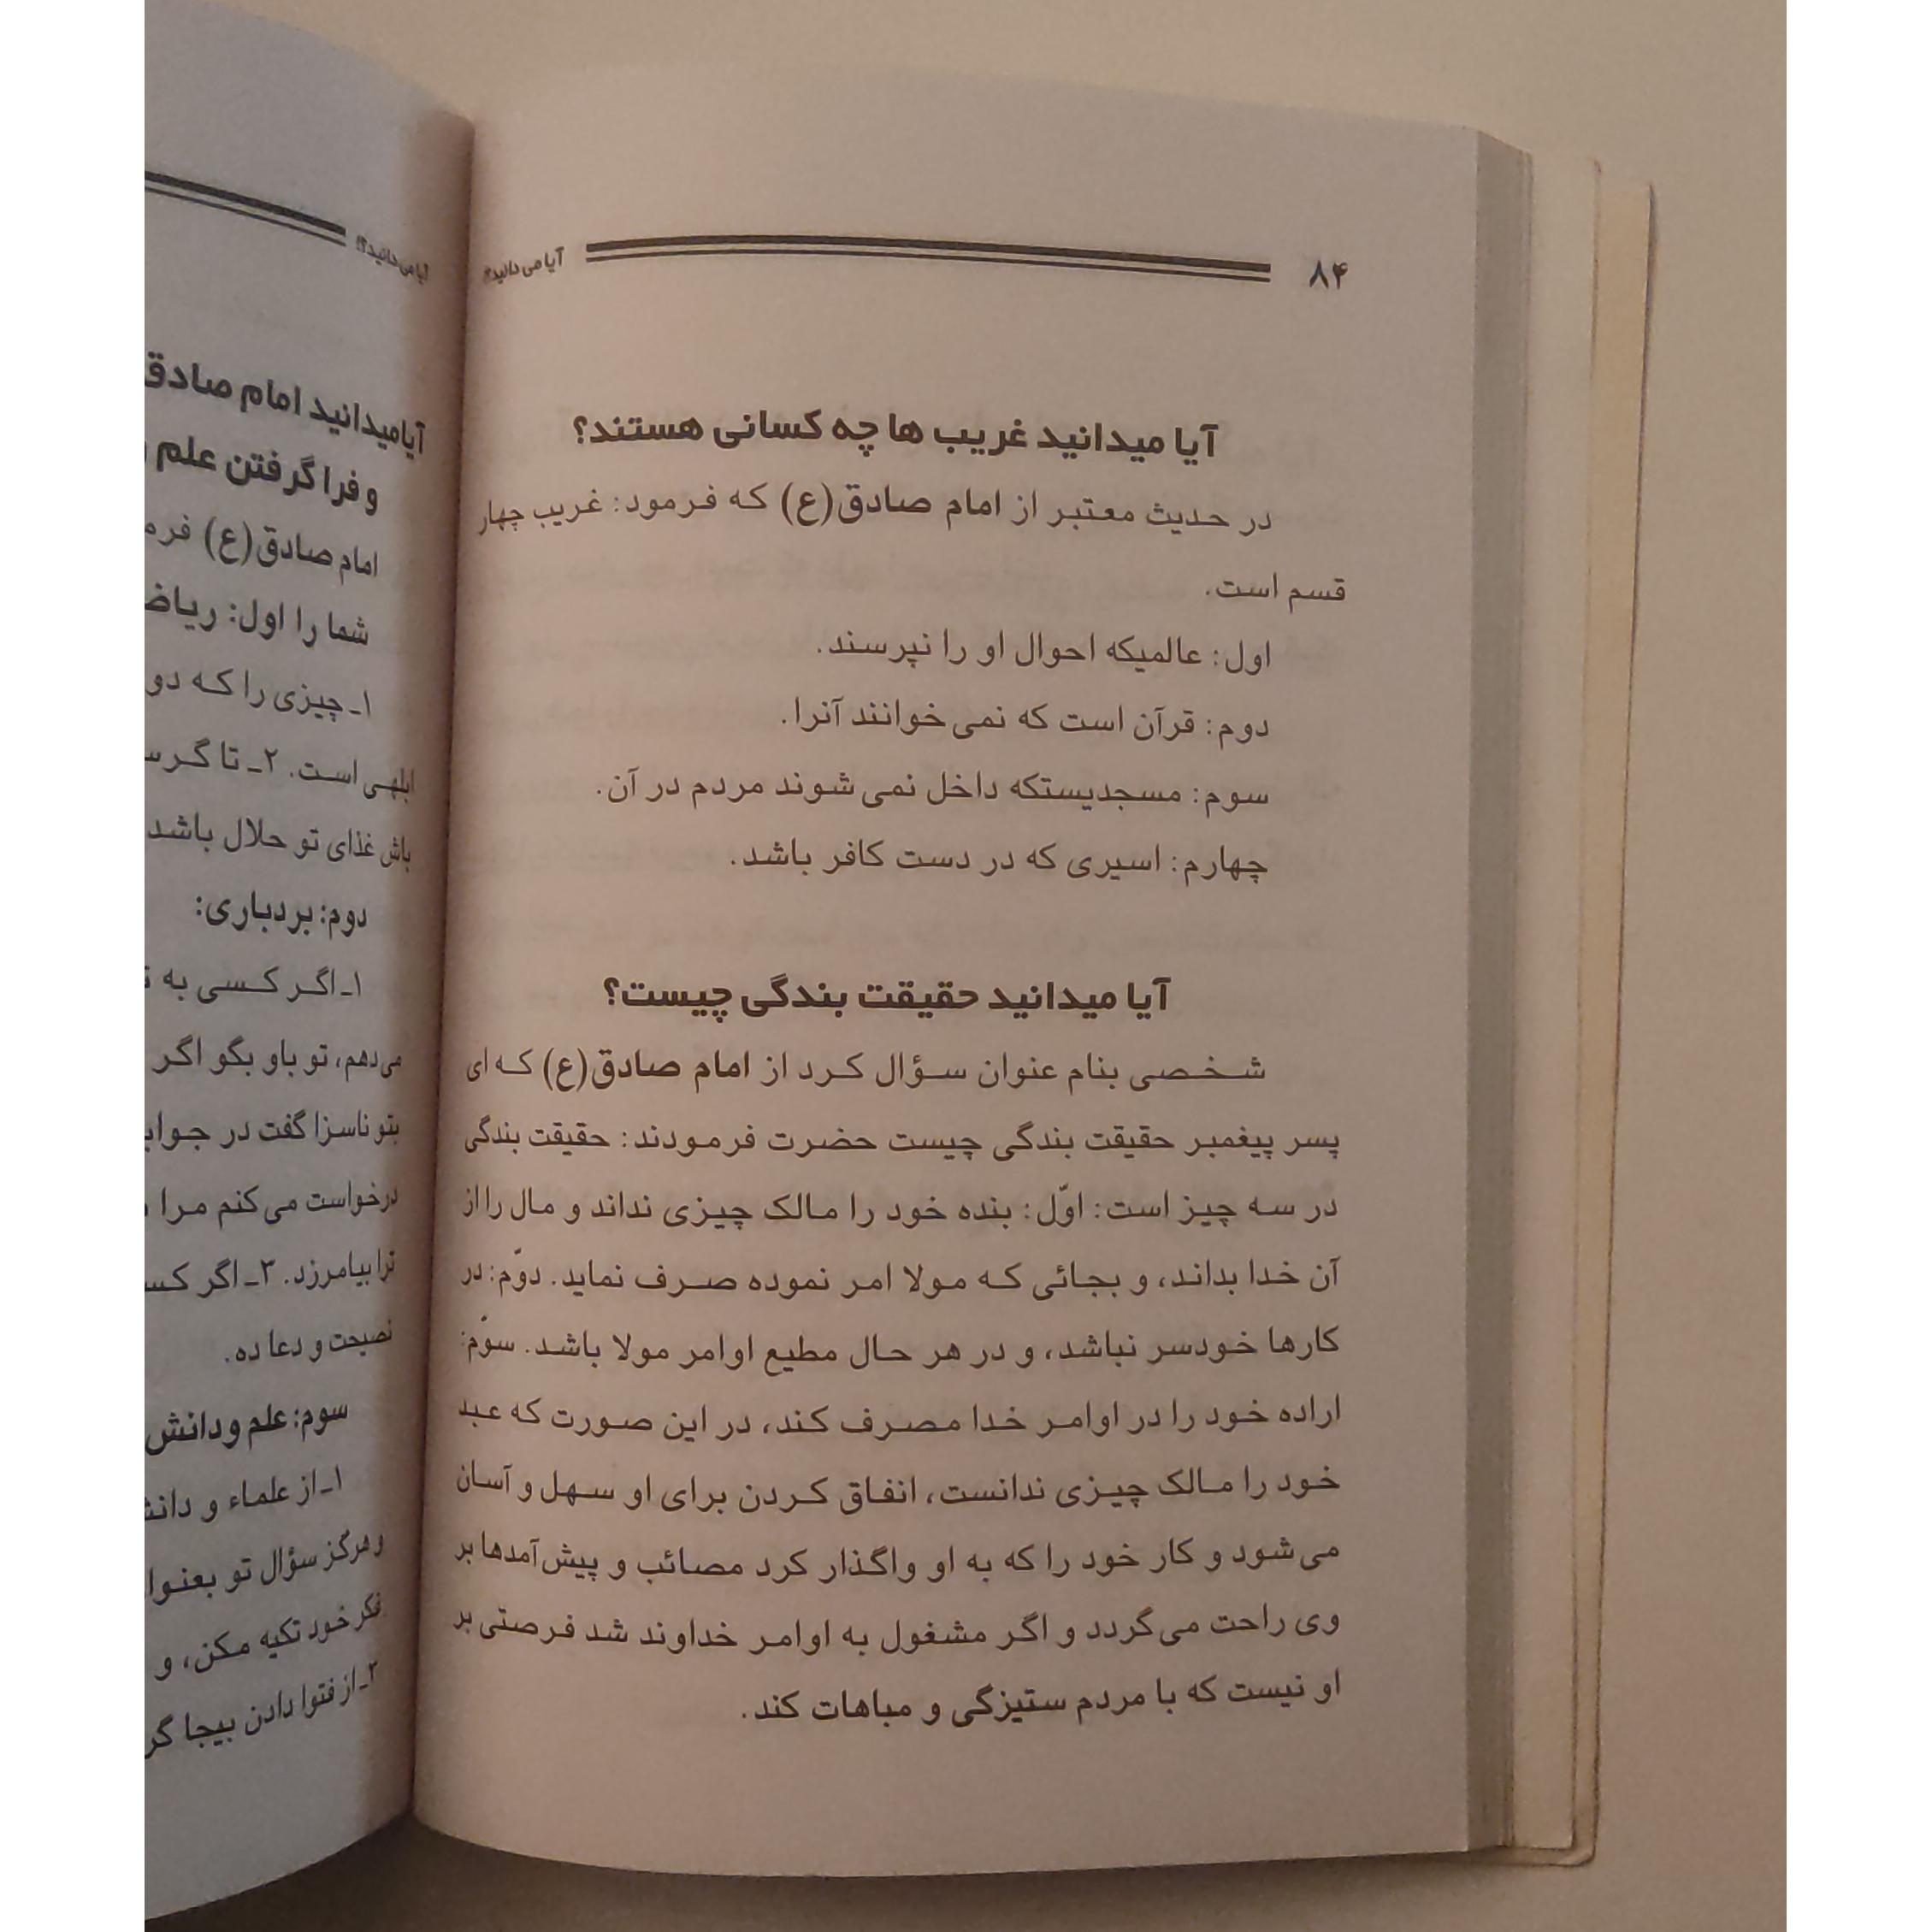 ۸۴
آیا می‌دانید؟!
آیا میدانید غریب ها چه کسانی هستند؟
در حدیث معتبر از امام صادق(ع) که فرمود: غریب چهار
قسم است.
اول: عالمیکه احوال او را نپرسند.
دوم: قرآن است که نمی‌خوانند آنرا.
سوم: مسجدیستکه داخل نمی‌شوند مردم در آن.
چهارم: اسیری که در دست کافر باشد.
آیا میدانید حقیقت بندگی چیست؟
شخصی بنام عنوان سؤال کرد از امام صادق(ع) که ای
پسر پیغمبر حقیقت بندگی چیست حضرت فرمودند: حقیقت بندگی
در سه چیز است: اوّل: بنده خود را مالک چیزی نداند و مال را از
آن خدا بداند، و بجائی که مولا امر نموده صرف نماید. دوّم: در
کارها خودسر نباشد، و در هر حال مطیع اوامر مولا باشد. سوّم:
اراده خود را در اوامر خدا مصرف کند، در این صورت که عبد
خود را مالک چیزی ندانست، انفاق کردن برای او سهل و آسان
می‌شود و کار خود را که به او واگذار کرد مصائب و پیش‌آمدها بر
وی راحت می‌گردد و اگر مشغول به اوامر خداوند شد فرصتی بر
او نیست که با مردم ستیزگی و مباهات کند.
آیا می‌دانید؟!
آیامیدانید امام صادق
و فرا گرفتن علم
امام صادق(ع)
شما را اول:
۱ـ چیزی را که دو
ابلهی است. ۲ـ تا
باش غذای تو حلال باشد
دوم: بردباری:
۱ـ اگر کسی به
می‌دهم، تو باو بگو اگر
بتو ناسزا گفت در
درخواست می‌کنم مرا
ترا بیامرزد. ۳ـ اگر
نصیحت و دعا ده.
سوم: علم و دانش
۱ـ از علماء و
و هرگز سؤال تو
فکر خود تکیه مکن، و
۲ـ از فتوا دادن بیجا